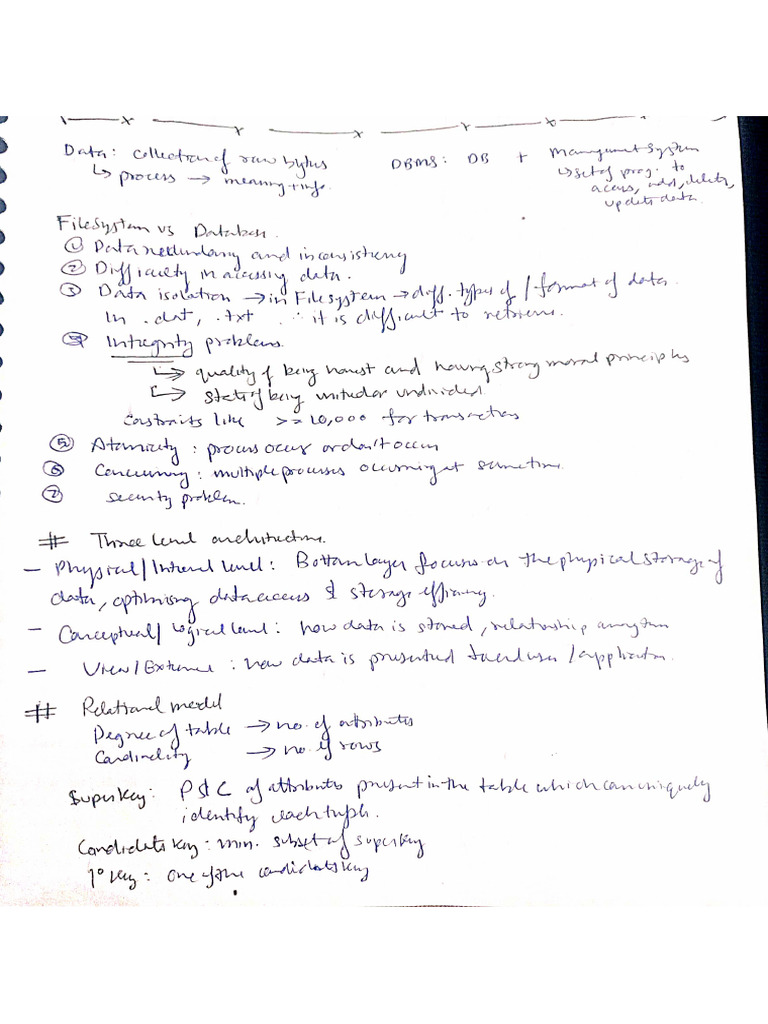 Data: collection of raw bytes
↳ process → meaning + info.
DBMS: DB + Management System
↳ set of prog. to
access, add, delete,
update data.
Filesystem vs Database.
① Data redundancy and inconsistency
② Difficulty in accessing data.
③ Data isolation → in Filesystem → diff. types of / format of data
In .dat, .txt ∴ it is difficult to retrieve.
④ Integrity problems.
↳ quality of being honest and having strong moral principles
↳ state of being united or undivided.
constraits like >= 10,000 for transaction
⑤ Atomicity: process occur or don't occur
⑥ Concurrency: multiple processes occurring at same time.
⑦ security problem.
# Three level architecture.
- Physical/Internal level: Bottom layer focuses on the physical storage of
data, optimising data access & storage efficiency.
- Conceptual/Logical level: how data is stored, relationship among them
- View/External: how data is presented to end user / application.
# Relational model
Degree of table → no. of attributes
Cardinality → no. of rows
Super Key: P & C of attributes present in the table which can uniquely
identify each tuple.
Candidate Key: min. subset of super key
1° key: one of the candidate key